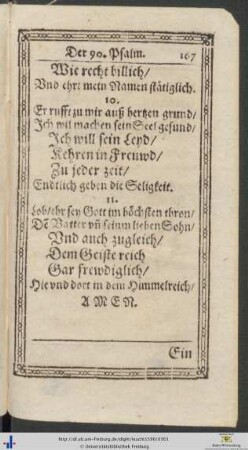 Der 90. Psalm. 167
Wie recht billich/
Vnd ehrt mein Namen stätiglich.
10.
Er rufft zu mir auß hertzen grund/
Ich wil machen sein Seel gesund/
Ich will sein Leyd/
Kehren in Frewd/
Zu jeder zeit/
Endtlich geben die Seligkeit.
11.
Lob/ehr sey Gott im höchsten thron/
Dẽ Vatter vñ seinm lieben Sohn/
Vnd auch zugleich/
Dem Geiste reich
Gar frewdiglich/
Hie vnd dort in dem Himmelreich/
A M E N.
Ein
© Universitätsbibliothek Freiburg